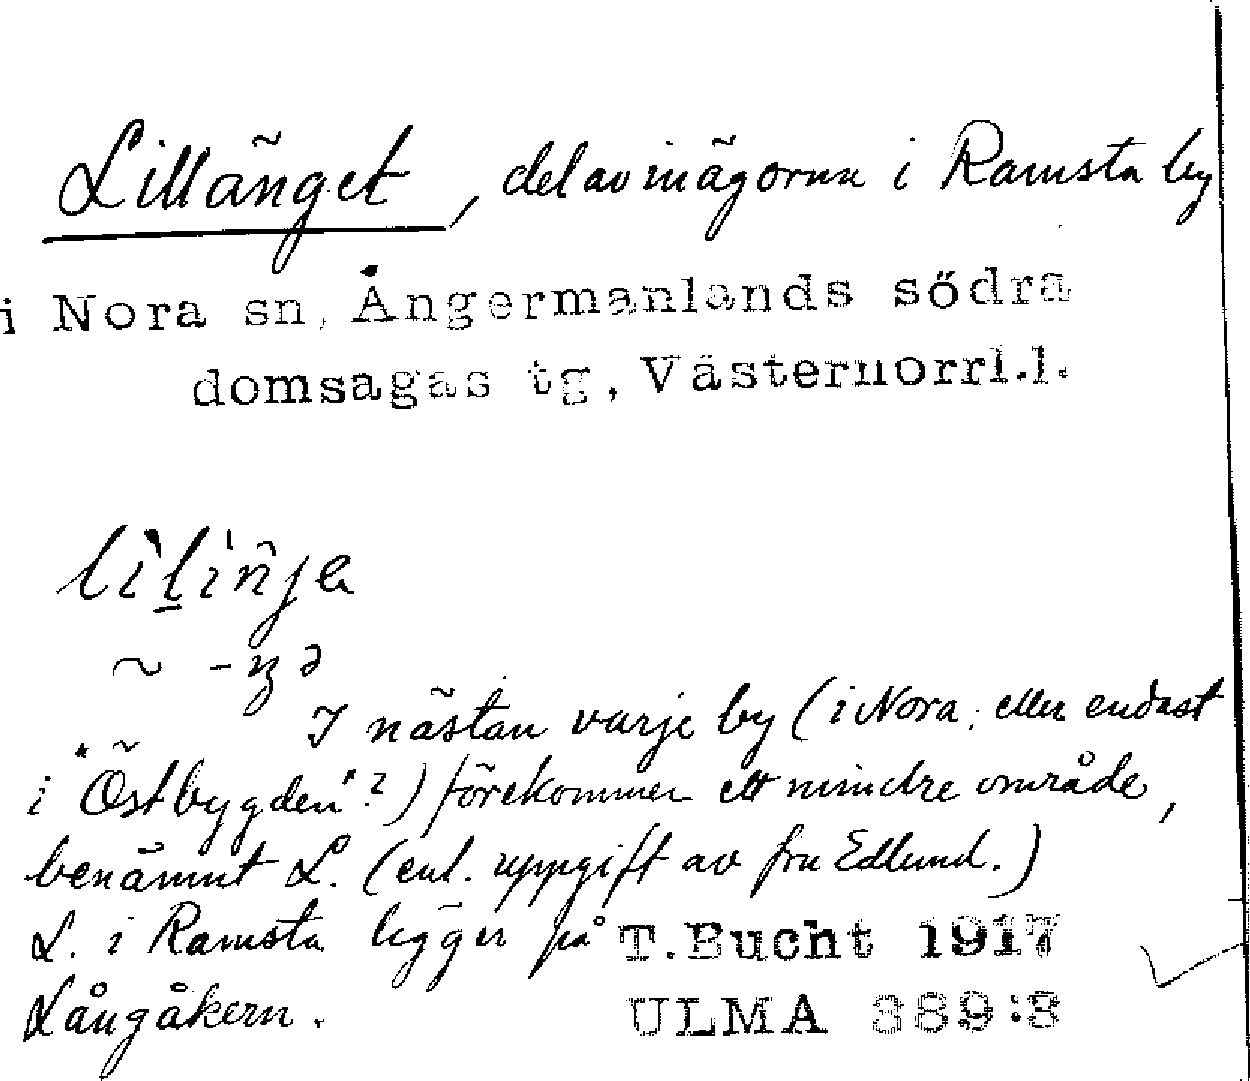 Lillänget, del av inägorna i Ramsta by
i Nora sn, Ångermanlands södra
domsagas tg, Västernorrl.l.
~
I nästan varje by (i Nora, eller endast
i "Östbygden"?) förekommer ett mindre område,
benämnt L. (enl. uppgift av fru Edlund.)
L. i Ramsta ligger på
Långåkern.
T. Bucht 1917
ULMA 389:3